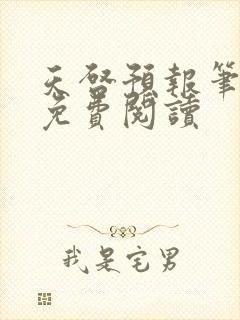 天啓預報筆
免費閱讀
我是宅男